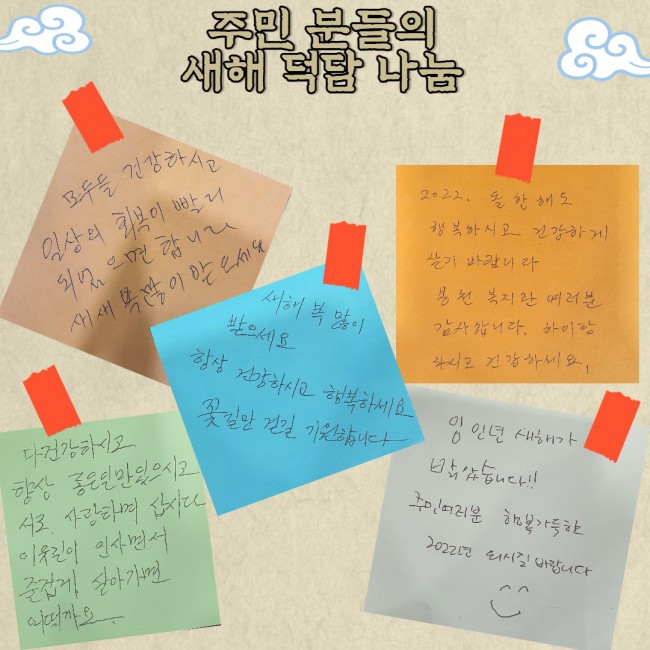 주민 분들의
새해 덕담 나눔
모두들 건강하시고
일상의 회복이 빨리
되었으면 합니다
새새 복많이 받으세요
2022. 올 한해도
행복하시고 건강하게
살기 바랍니다
봉천 복지관 여러분
감사합니다. 하이팅
하시고 건강하세요.
새해 복 많이
받으세요
항상 건강하시고 행복하세요
꽃길만 걷길 기원합니다
다건강하시고
항상 좋은일만있으시고
서로 사랑하며 삽시다
이웃길이 인사면서
즐겁게 살아가면
어떨까요
임인년 새해가
밝았습니다!!
주민여러분 행복가득한
2022년 되시길 바랍니다